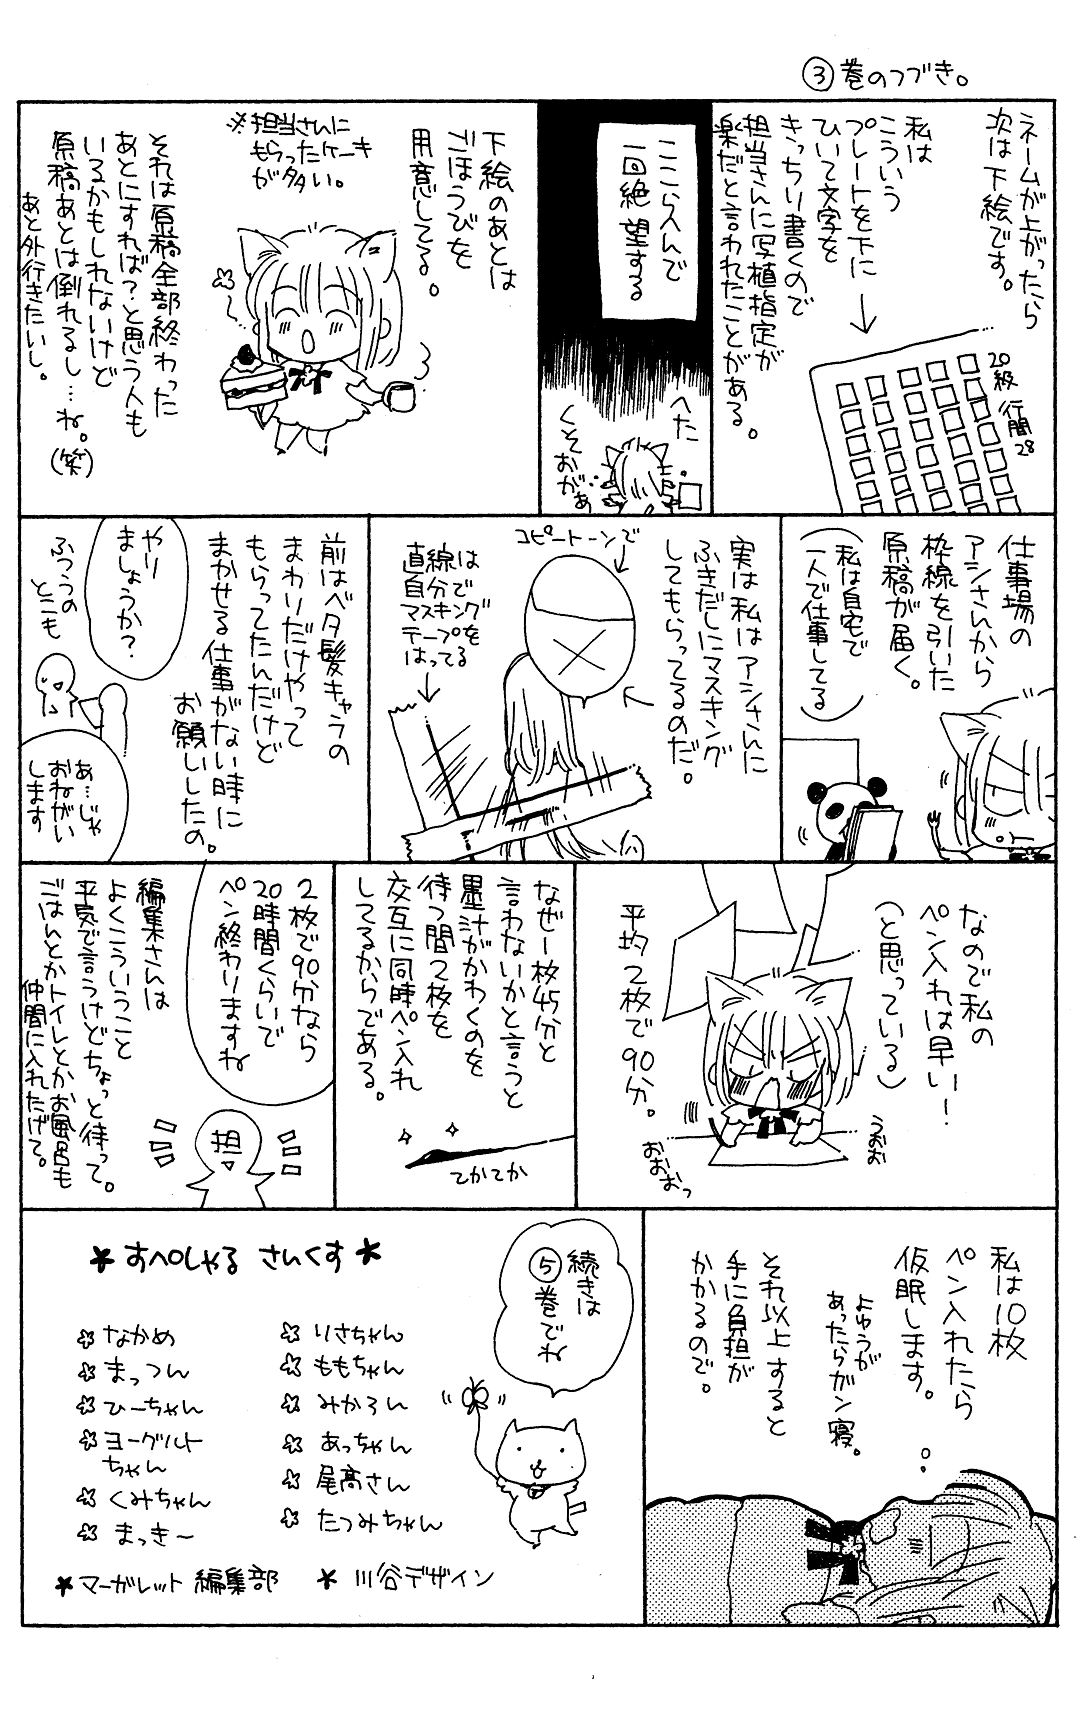 ③巻のつづき。
ネームが上がったら
次は下絵です。
私は
こういう
プレートを下に
ひいて文字を
きっちり書くので
担当さんに写植指定が
楽だと言われたことがある。
20級
行間28
ここらへんで
一回絶望する
へた
くそおがぁ
下絵のあとは
ごほうびを
用意してる。
※担当さんに
もらったケーキ
が多い。
それは原稿全部終わった
あとにすれば?と思う人も
いるかもしれないけど
原稿あとは倒れるし…ね。(笑)
あと外行きたいし。
仕事場の
アシさんから
枠線を引いた
原稿が届く。
(私は自宅で
一人で仕事してる)
実は私はアシさんに
ふきだしにマスキング
してもらってるのだ。
コピートーンで
直線は
自分で
マスキング
テープを
はってる
前はベタ髪キャラの
まわりだけやって
もらってたんだけど
まかせる仕事がない時に
お願いしたの。
やり
ましょうか?
ふつうの
とこも
あ…じゃ
おねがい
します
なので私の
ペン入れは早い!
(と思っている)
平均2枚で90分。
うおお
おおおっ
なぜ1枚45分と
言わないかと言うと
墨汁がかわくのを
待つ間2枚を
交互に同時ペン入れ
してるからである。
てかてか
2枚で90分なら
20時間くらいで
ペン終わりますね
担
編集さんは
よくこういうこと
平気で言うけどちょっと待って。
ごはんとかトイレとかお風呂も
仲間に入れたげて。
私は10枚
ペン入れたら
仮眠します。
よゆうが
あったらガン寝。
それ以上すると
手に負担が
かかるので。
続きは
⑤巻でね
＊すぺしゃる さんくす＊
なかめ
まっつん
ひーちゃん
ヨーグルト
ちゃん
くみちゃん
まっきー
りさちゃん
ももちゃん
みかろん
あっちゃん
尾高さん
たつみちゃん
＊マーガレット編集部
＊川谷デザイン